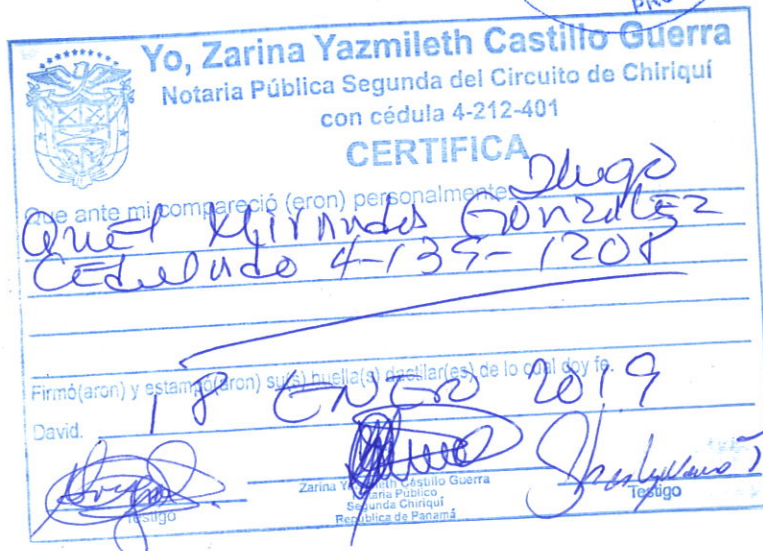 PRO
Yo, Zarina Yazmileth Castillo Guerra
Notaria Pública Segunda del Circuito de Chiriquí
con cédula 4-212-401
CERTIFICA
Que ante mi compareció (eron) personalmente Diego
Miranda González
Cedulado 4-139-1208
Firmó(aron) y estampó(aron) su(s) huella(s) dactilar(es) de lo cual doy fe.
David. 18 ENERO 2019
Zarina Yazmileth Castillo Guerra
Notaria Público
Segunda Chiriquí
República de Panamá
Testigo
Testigo